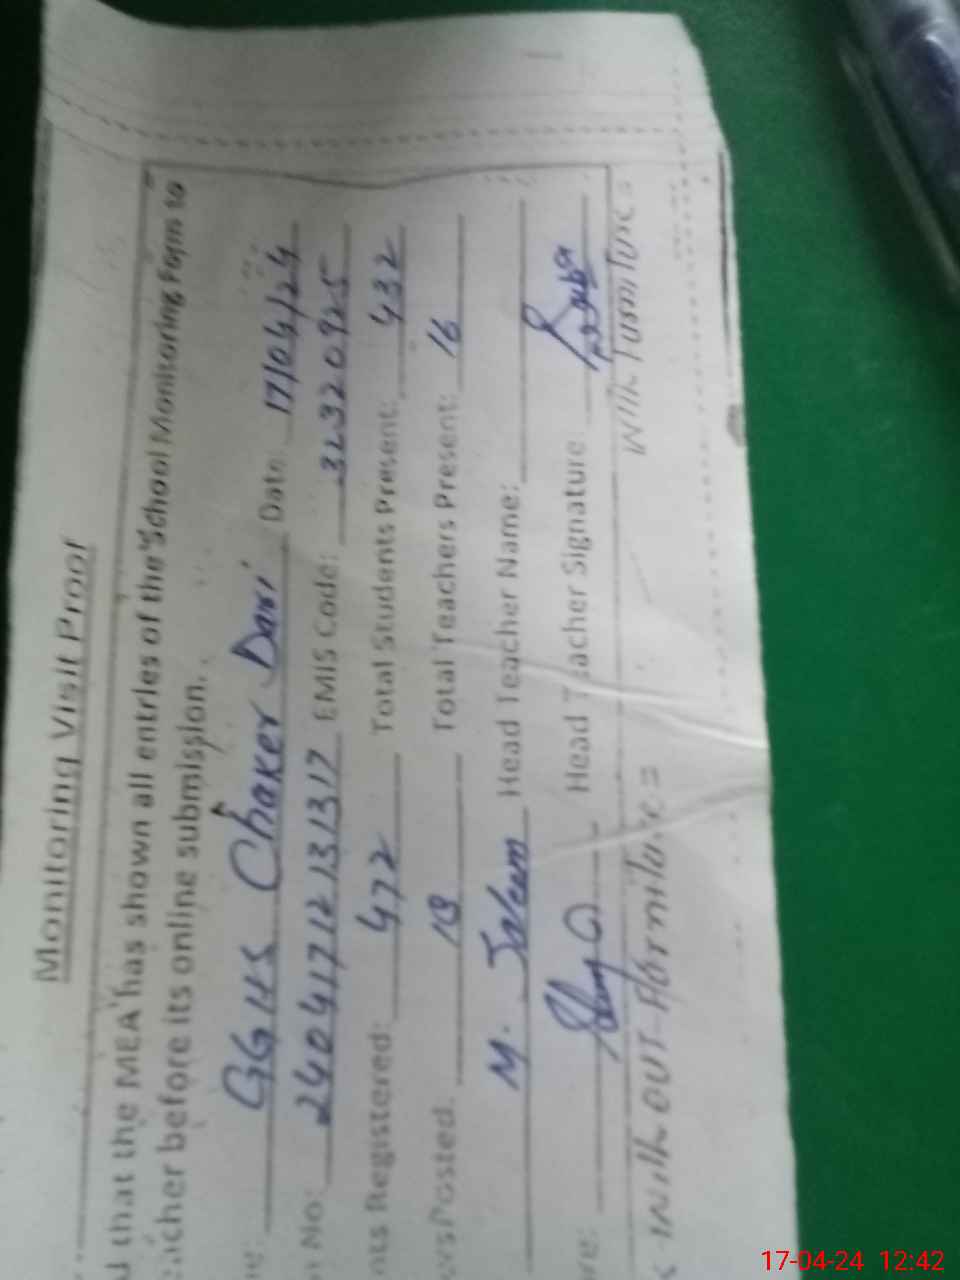 Monitoring Visit Proof
that the MEA has shown all entries of the School Monitoring Form to
acher before its online submission.
GGHS Chaker Dari Date: 17/04/24
No: 24041712131317 EMIS Code: 32320925
nts Registered: 472 Total Students Present: 432
ers Posted: 18 Total Teachers Present: 16
M. Saleem Head Teacher Name:
Head Teacher Signature:
With out Furniture = With Furniture =
17-04-24 12:42